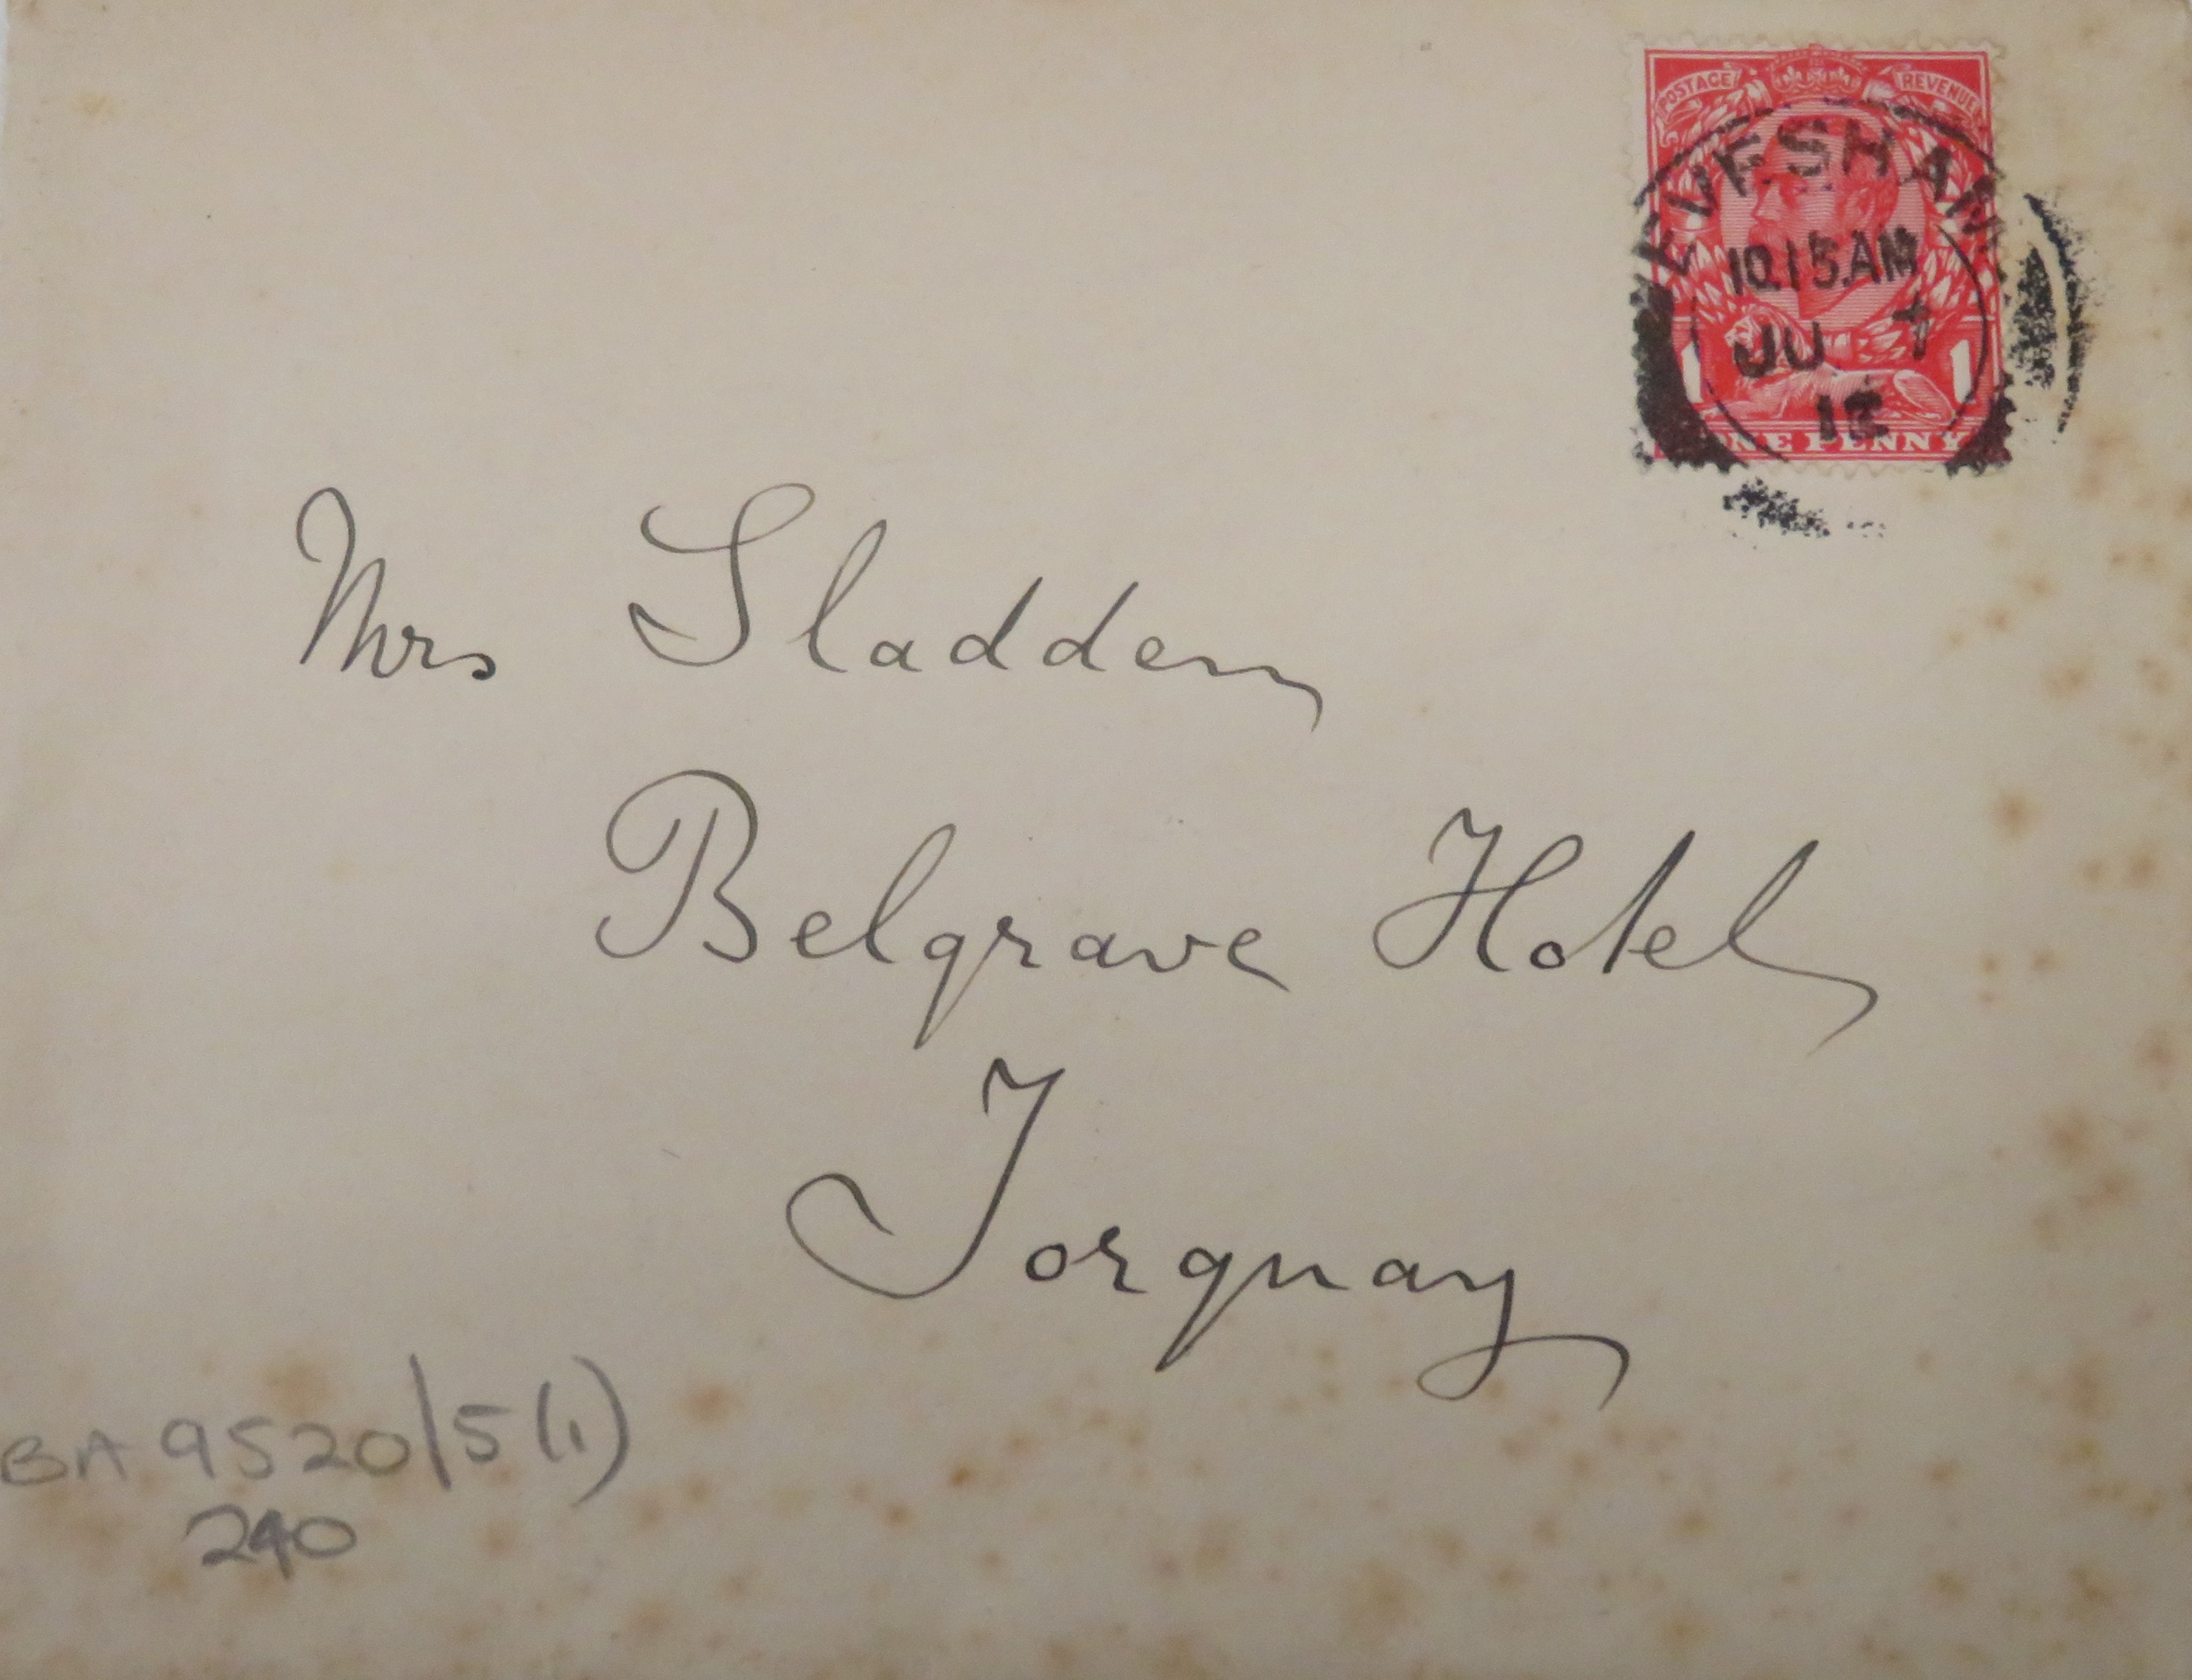 POSTAGE REVENUE
EVESHAM
10.15.AM
JU 4
12
1 1
ONE PENNY
Mrs Sladden
Belgrave Hotel
Torquay
BA 9520/5(1)
240